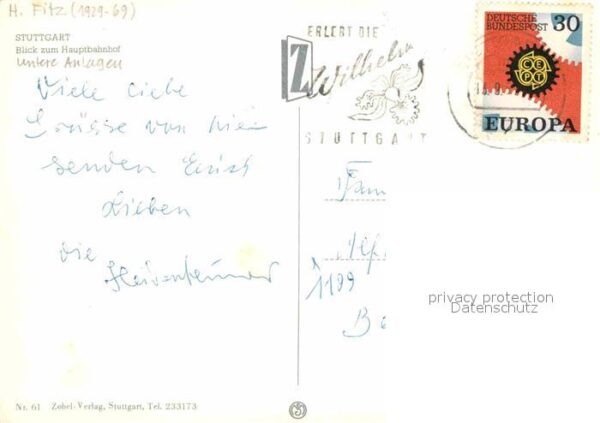 H. Fitz (1929-69)
STUTTGART
Blick zum Hauptbahnhof
Untere Anlagen
Viele liebe
Grüsse von hier
senden Euch
Lieben
die
ERLEBT DIE
Wilhelma
STUTTGART
DEUTSCHE BUNDESPOST 30
CEPT
EUROPA
Fam
1199
privacy protection
Datenschutz
Nr. 61 Zobel-Verlag, Stuttgart, Tel. 233173